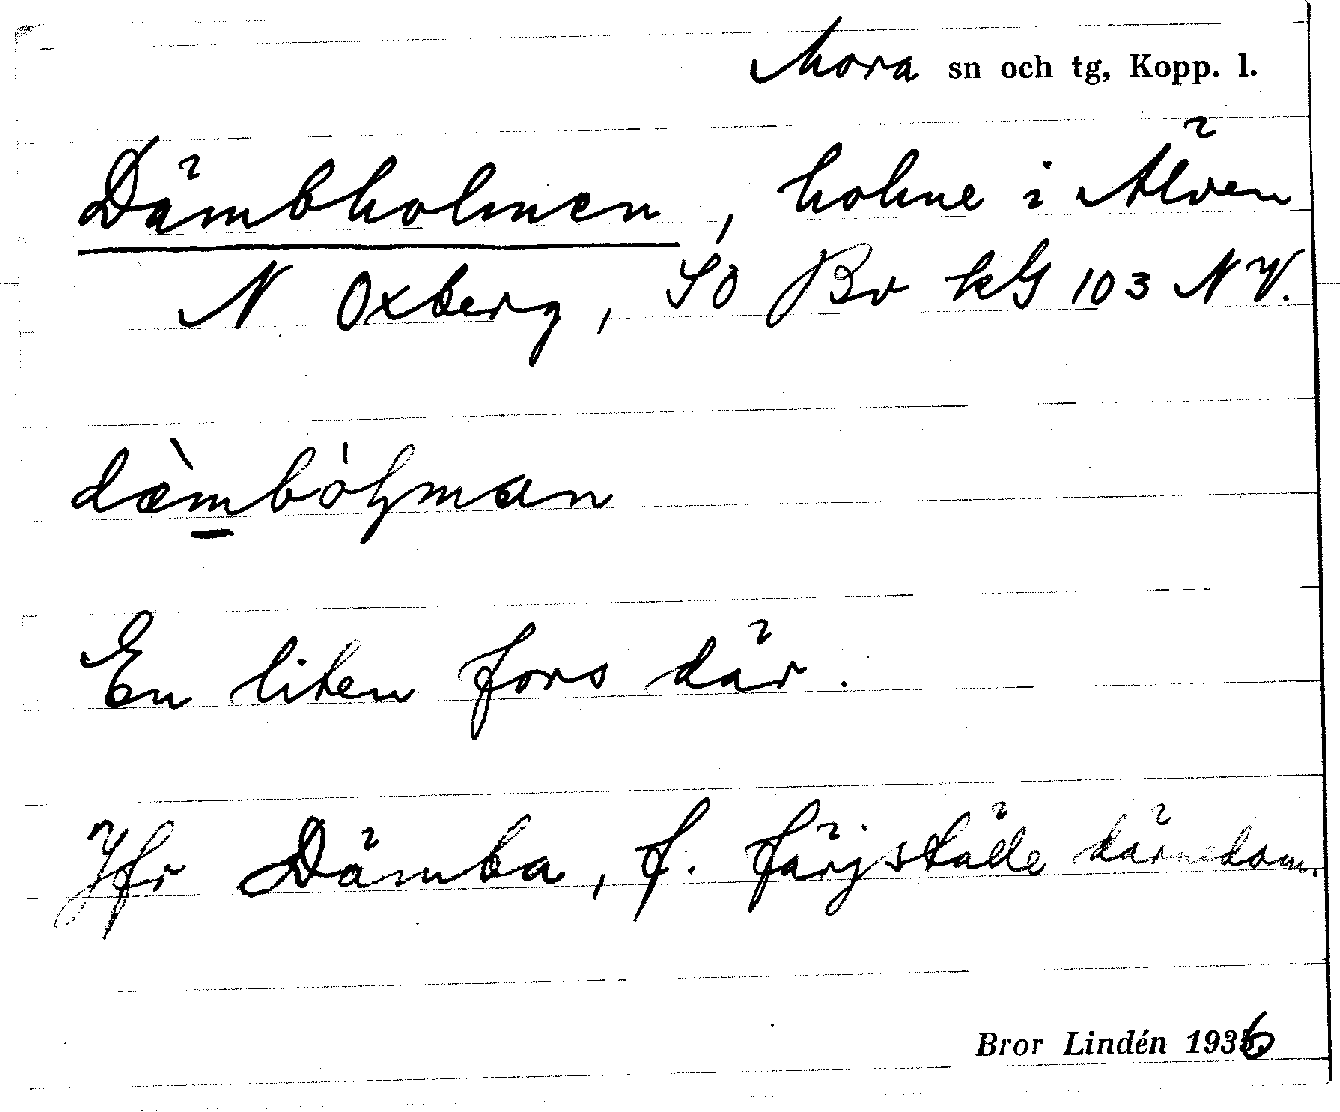 Mora sn och tg, Kopp. l.
Dämbholmen, holme i Älven
N Oxberg, SO Bv kG 103 NV.
dæ̀mbòḷman
En liten fors där.
Jfr Dämba, f. färjställe därnedom.
Bror Lindén 1936